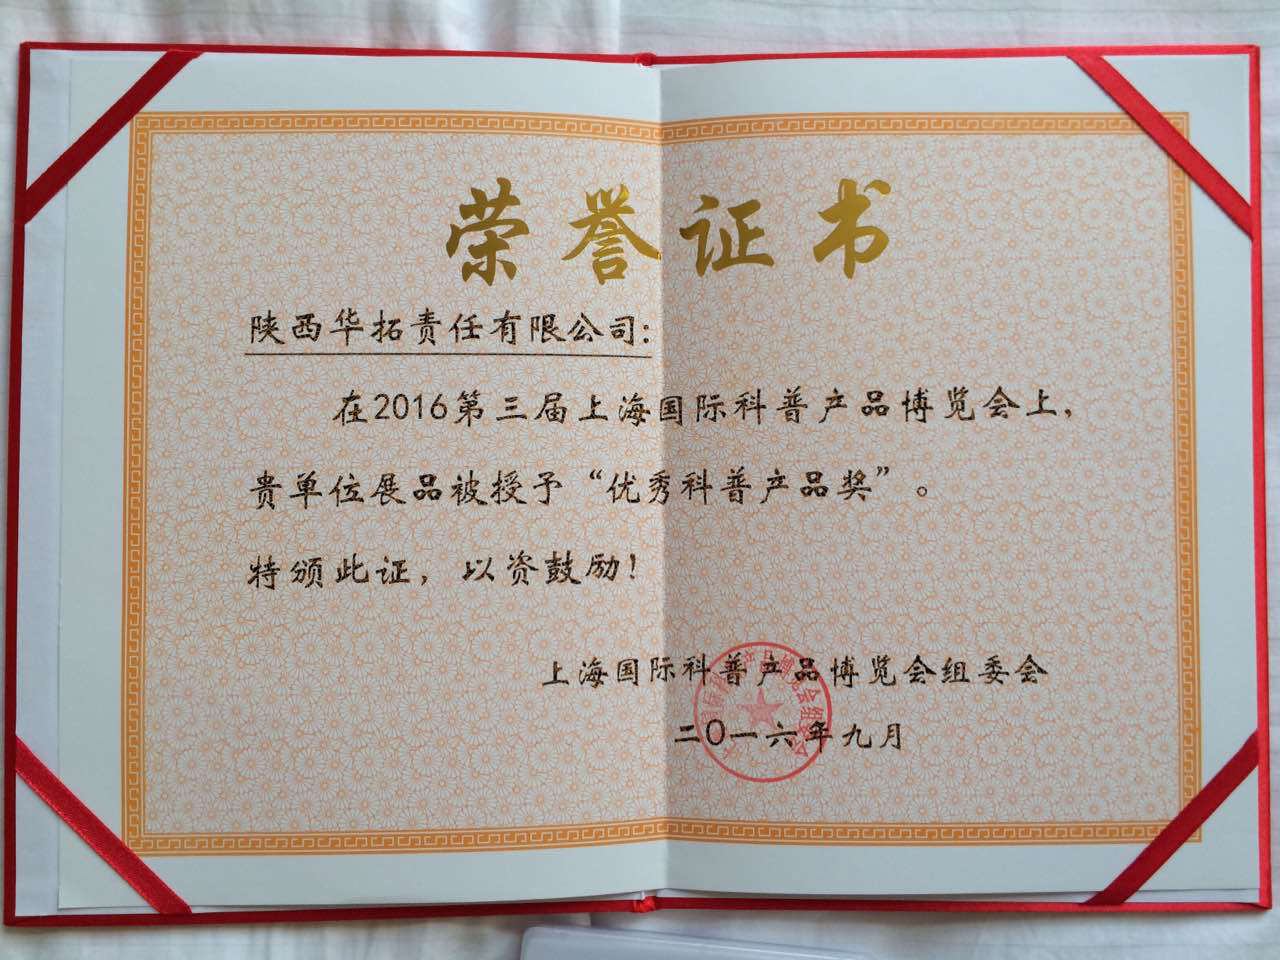 荣誉证书
陕西华拓责任有限公司:
在2016第三届上海国际科普产品博览会上,
贵单位展品被授予“优秀科普产品奖”。
特颁此证,以资鼓励!
上海国际科普产品博览会组委会
二〇一六年九月